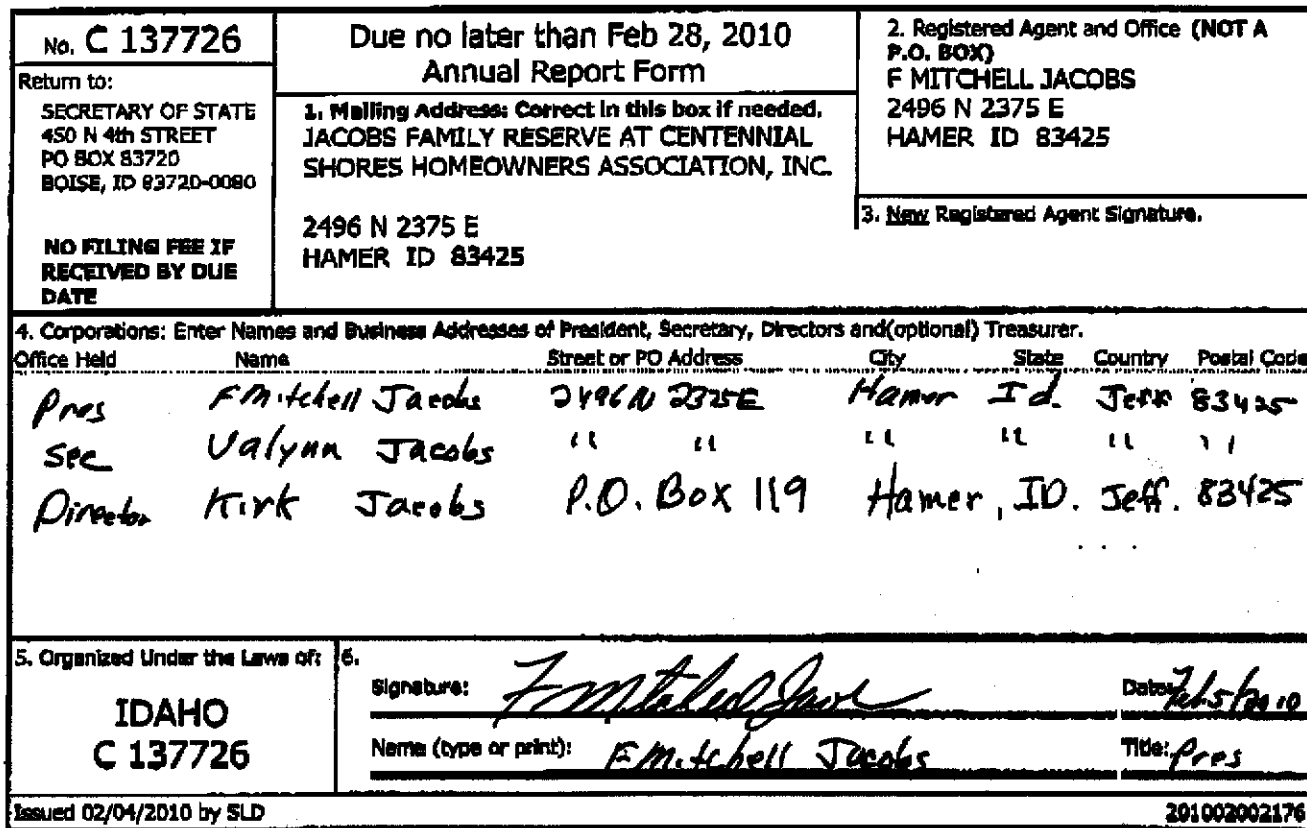 No. C 137726
Return to:
SECRETARY OF STATE
450 N 4th STREET
PO BOX 83720
BOISE, ID 83720-0080
NO FILING FEE IF
RECEIVED BY DUE
DATE
Due no later than Feb 28, 2010
Annual Report Form
1. Mailing Address: Correct in this box if needed.
JACOBS FAMILY RESERVE AT CENTENNIAL
SHORES HOMEOWNERS ASSOCIATION, INC.
2496 N 2375 E
HAMER ID 83425
2. Registered Agent and Office (NOT A
P.O. BOX)
F MITCHELL JACOBS
2496 N 2375 E
HAMER ID 83425
3. New Registered Agent Signature.
4. Corporations: Enter Names and Business Addresses of President, Secretary, Directors and(optional) Treasurer.
Office Held Name Street or PO Address City State Country Postal Code
Pres F Mitchell Jacobs 2496 N 2375E Hamer Id. Jeff 83425
Sec Valynn Jacobs " " " " " "
Director Kirk Jacobs P.O. Box 119 Hamer, ID. Jeff. 83425
5. Organized Under the Laws of:
IDAHO
C 137726
6.
Signature: F Mitchell Jacobs Date: Feb 5/2010
Name (type or print): F Mitchell Jacobs Title: Pres
Issued 02/04/2010 by SLD 201002002176